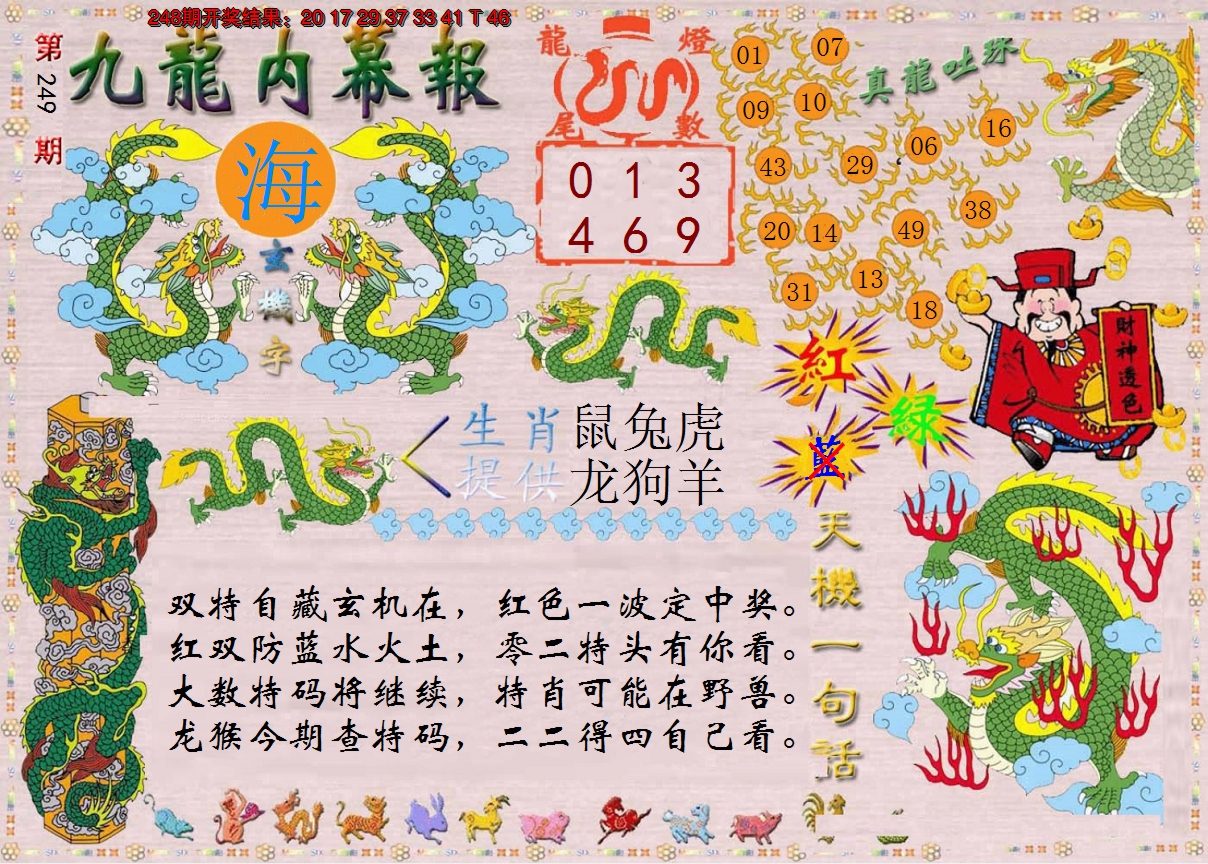 248期开奖结果：20 17 29 37 33 41 T 46
第249期
九龍内幕報
海
玄機字
龍燈
尾數
0 1 3
4 6 9
真龍吐珠
01 07
09 10
43 29 06 16
20 14 49 38
31 13 18
財神透色
紅
綠
藍
生肖 鼠兔虎
提供 龙狗羊
天機一句話
双特自藏玄机在，红色一波定中奖。
红双防蓝水火土，零二特头有你看。
大数特码将继续，特肖可能在野兽。
龙猴今期查特码，二二得四自己看。